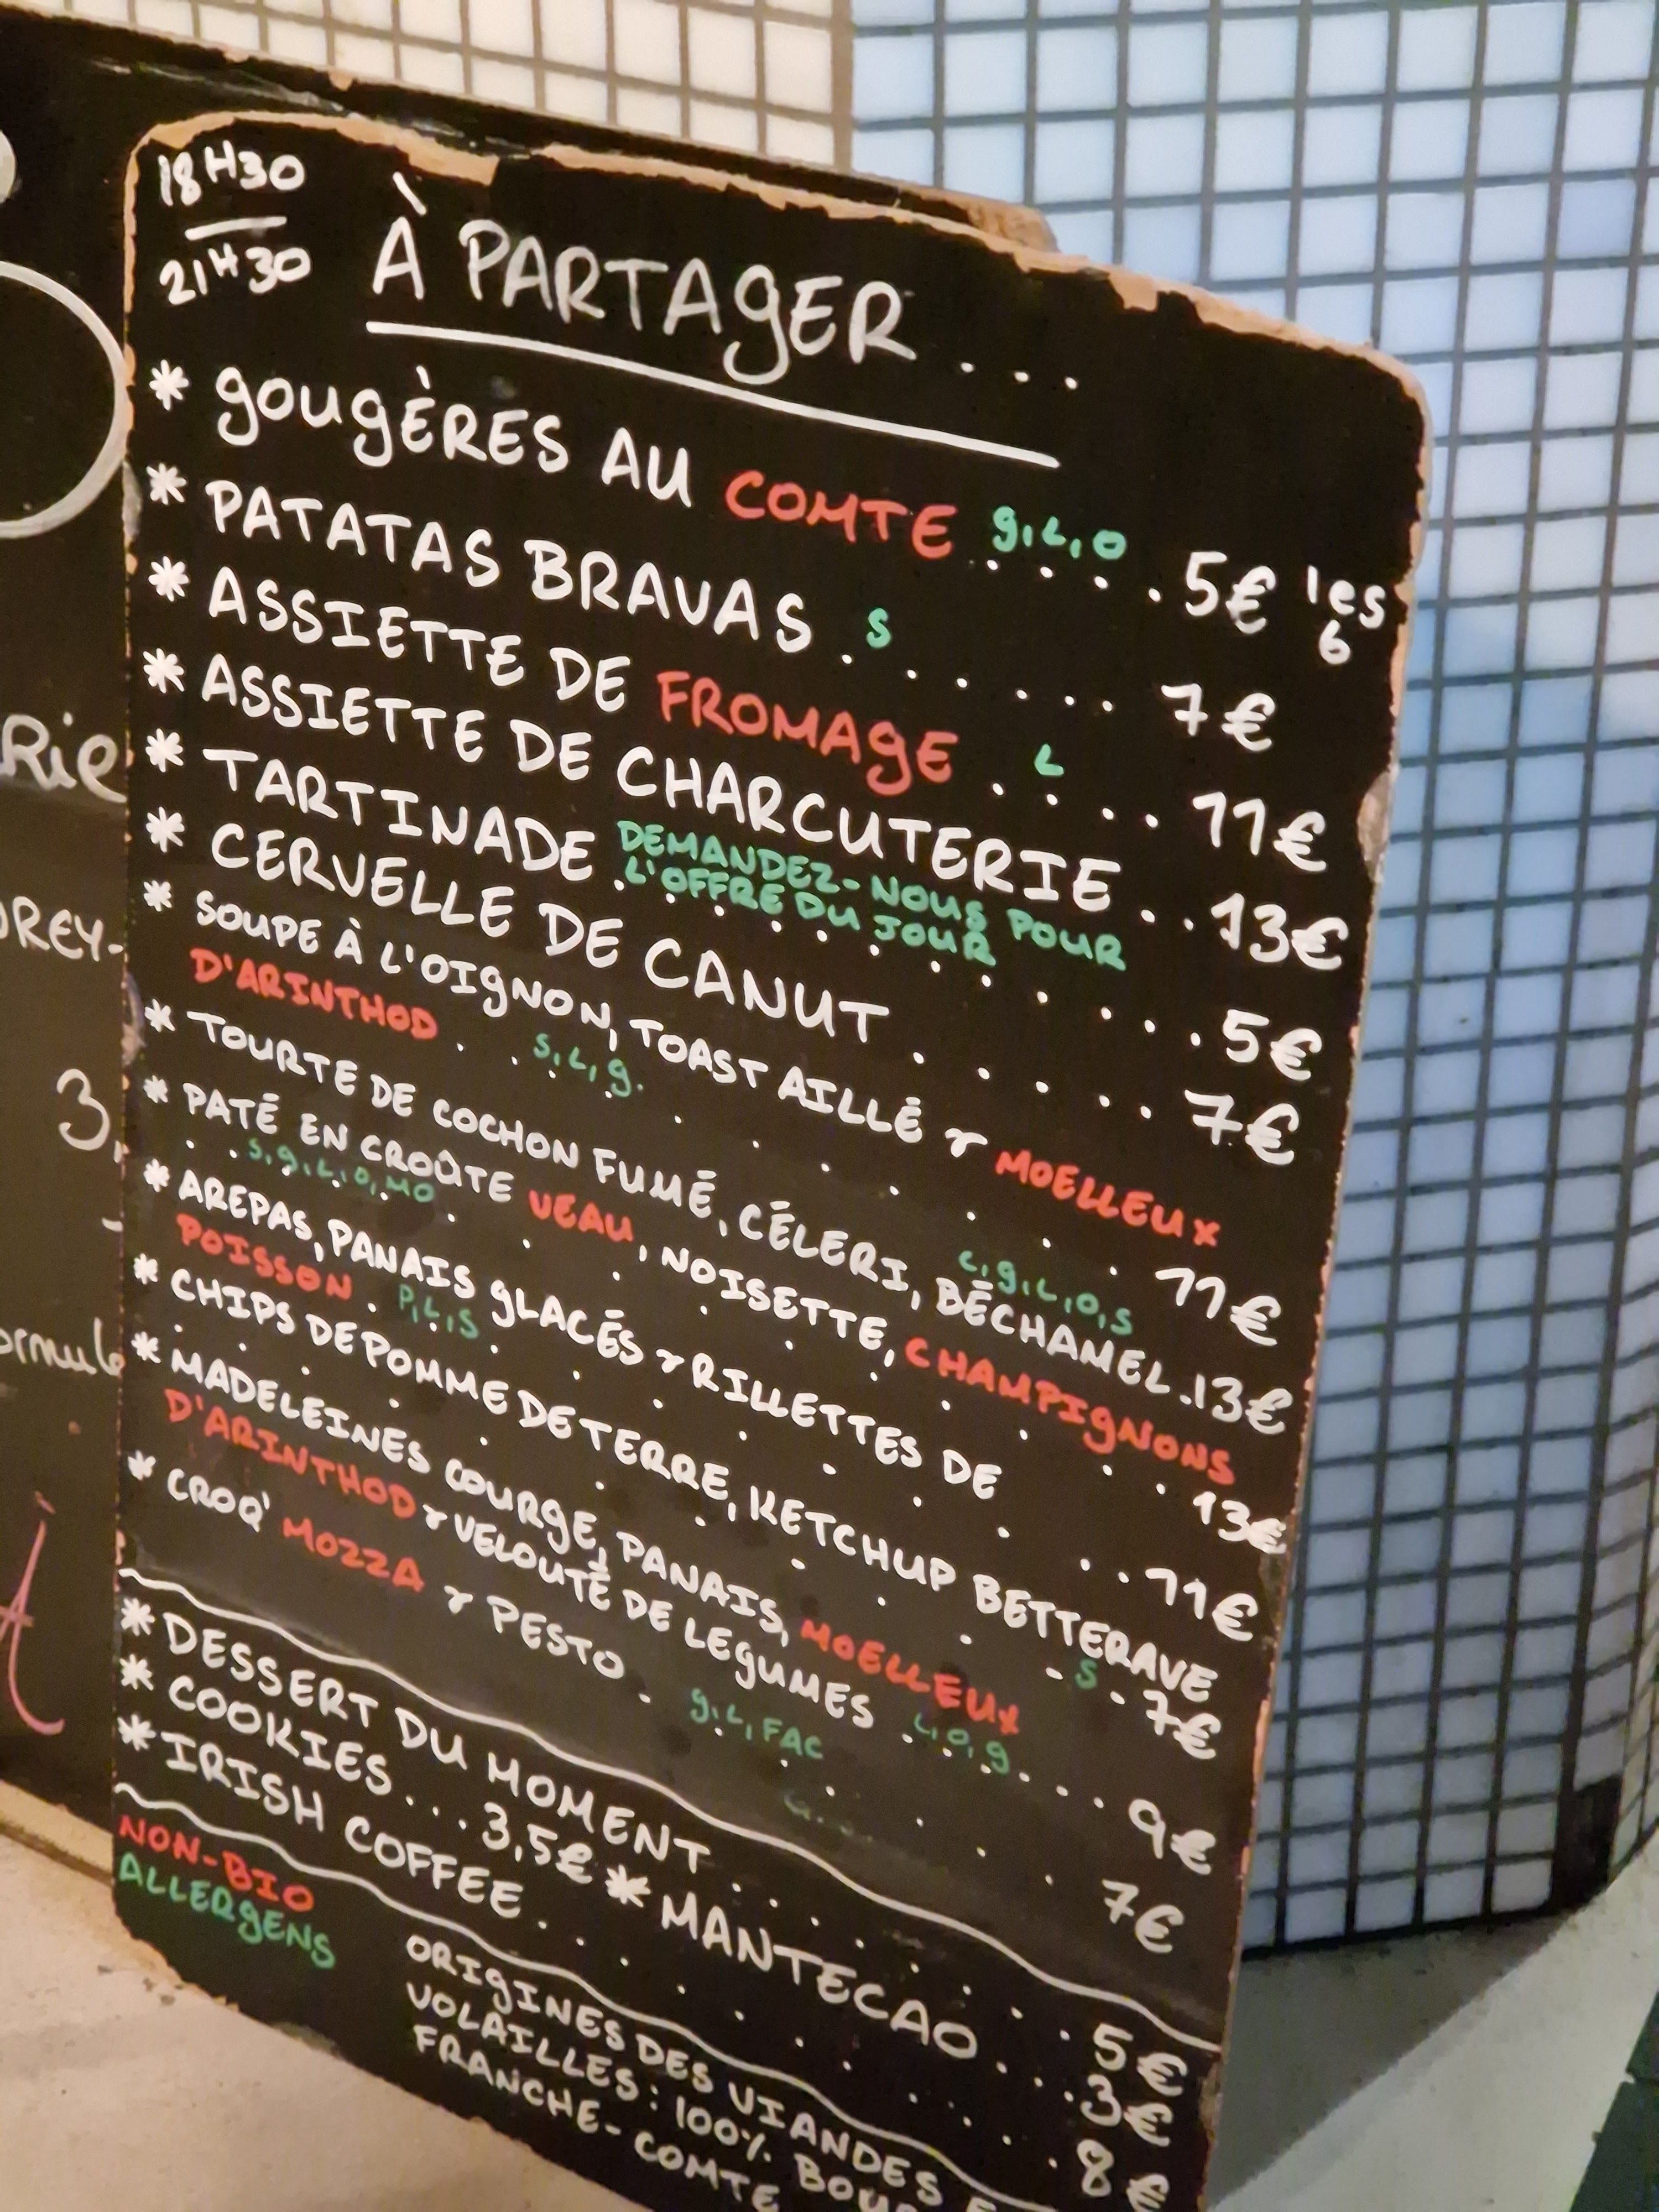 18H30
21H30
À PARTAGER...
* GOUGÈRES AU COMTE G,L,O .... 5€ les 6
* PATATAS BRAVAS . S ..... 7€
* ASSIETTE DE FROMAGE . L ... 11€
* ASSIETTE DE CHARCUTERIE .. 13€
* TARTINADE DEMANDEZ-NOUS POUR L'OFFRE DU JOUR ......... 5€
* CERVELLE DE CANUT ..... 7€
* SOUPE À L'OIGNON, TOAST AILLÉ & MOELLEUX
D'ARINTHOD .. S,L,G. ....... 11€
* TOURTE DE COCHON FUMÉ, CÉLERI, BÉCHAMEL C,G,L,O,S .13€
* PATÉ EN CROÛTE VEAU, NOISETTE, CHAMPIGNONS
.. S,G,L,O,MO ......... 13€
* AREPAS, PANAIS GLACÉS & RILLETTES DE
POISSON . P,L,S ........ 11€
* CHIPS DE POMME DE TERRE, KETCHUP BETTERAVE
......... S . 7€
* MADELEINES COURGE, PANAIS, MOELLEUX
D'ARINTHOD & VELOUTÉ DE LEGUMES L,O,G .... 9€
* CROQ' MOZZA & PESTO . G,L,FAC ..... 7€
* DESSERT DU MOMENT ....... 5€
* COOKIES... 3,5€ * MANTECAO ... 3€
* IRISH COFFEE ........ 8€
NON-BIO
ALLERGENS
ORIGINES DES VIANDES
VOLAILLES : 100%
FRANCHE-COMTE
Rie
3,